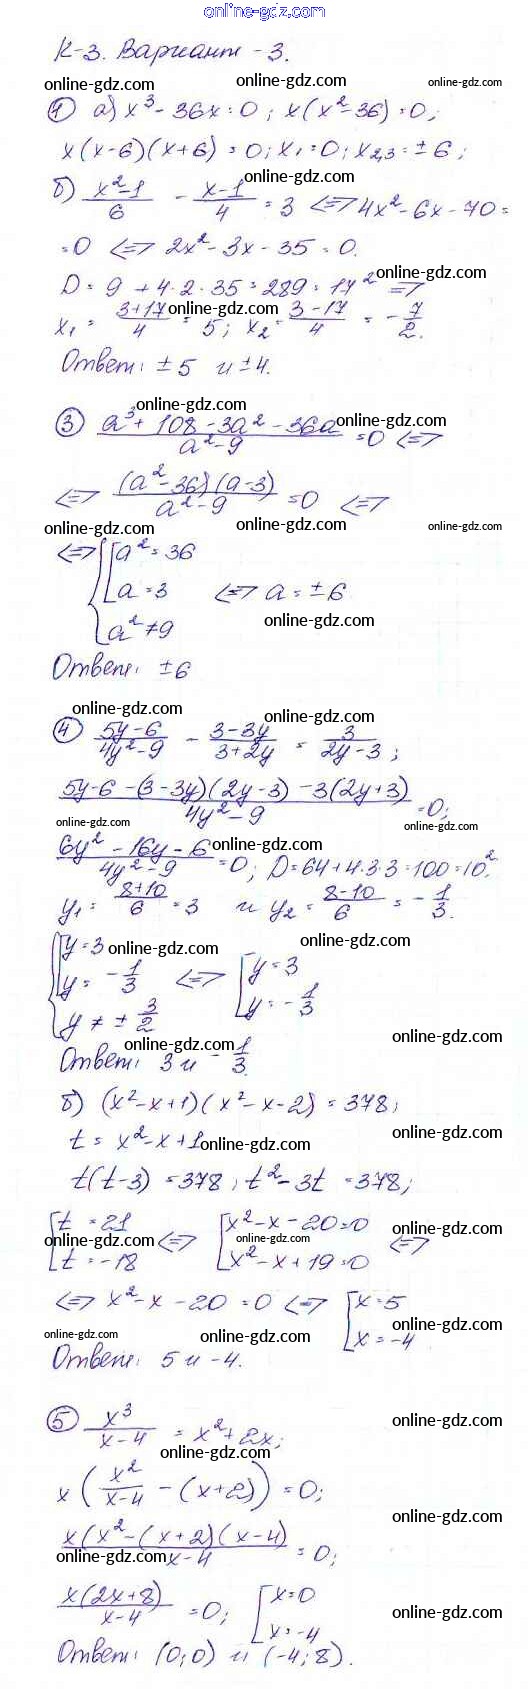 online-gdz.com
К-3. Вариант -3.
online-gdz.com online-gdz.com online-gdz.com
① а) x³ - 36x = 0; x(x² - 36) = 0;
x(x-6)(x+6) = 0; x₁ = 0; x₂,₃ = ± 6;
online-gdz.com
б) (x²-1)/6 - (x-1)/4 = 3 <=> 4x² - 6x - 70 =
= 0 <=> 2x² - 3x - 35 = 0.
online-gdz.com
D = 9 + 4·2·35 = 289 = 17² =>
x₁ = (3+17)/4 = 5; x₂ = (3-17)/4 = -7/2.
online-gdz.com online-gdz.com
Ответ: ± 5 и ±4.
online-gdz.com
③ (a³ + 108 - 3a² - 36a)/(a² - 9) = 0 <=>
online-gdz.com
<=> ((a² - 36)(a - 3))/(a² - 9) = 0 <=>
online-gdz.com online-gdz.com online-gdz.com
<=> { [ a² = 36
a = 3 <=> a = ± 6
a² ≠ 9
online-gdz.com
Ответ: ± 6
online-gdz.com online-gdz.com
④ (5y-6)/(4y²-9) - (3-3y)/(3+2y) = 3/(2y-3);
(5y-6-(3-3y)(2y-3)-3(2y+3))/(4y²-9) = 0;
online-gdz.com online-gdz.com
(6y² - 16y - 6)/(4y²-9) = 0; D = 64+4·3·3 = 100 = 10².
online-gdz.com
y₁ = (8+10)/6 = 3 и y₂ = (8-10)/6 = -1/3.
online-gdz.com online-gdz.com
{ [ y = 3
y = -1/3 <=> [ y = 3
y ≠ ± 3/2 y = -1/3
online-gdz.com online-gdz.com
Ответ: 3 и -1/3.
б) (x²-x+1)(x²-x-2) = 378;
online-gdz.com
t = x²-x+1
online-gdz.com
t(t-3) = 378; t² - 3t = 378;
[ t = 21 <=> [ x²-x-20=0
t = -18 x²-x+19=0 <=>
online-gdz.com online-gdz.com online-gdz.com
<=> x²-x-20 = 0 <=> [ x = 5
x = -4
online-gdz.com online-gdz.com online-gdz.com
Ответ: 5 и -4.
online-gdz.com
⑤ x³/(x-4) = x²+2x;
online-gdz.com
x(x²/(x-4) - (x+2)) = 0;
online-gdz.com
(x(x²-(x+2)(x-4))/(x-4) = 0;
online-gdz.com
(x(2x+8))/(x-4) = 0; [ x = 0
x = -4
online-gdz.com
Ответ: (0;0) и (-4; 8).